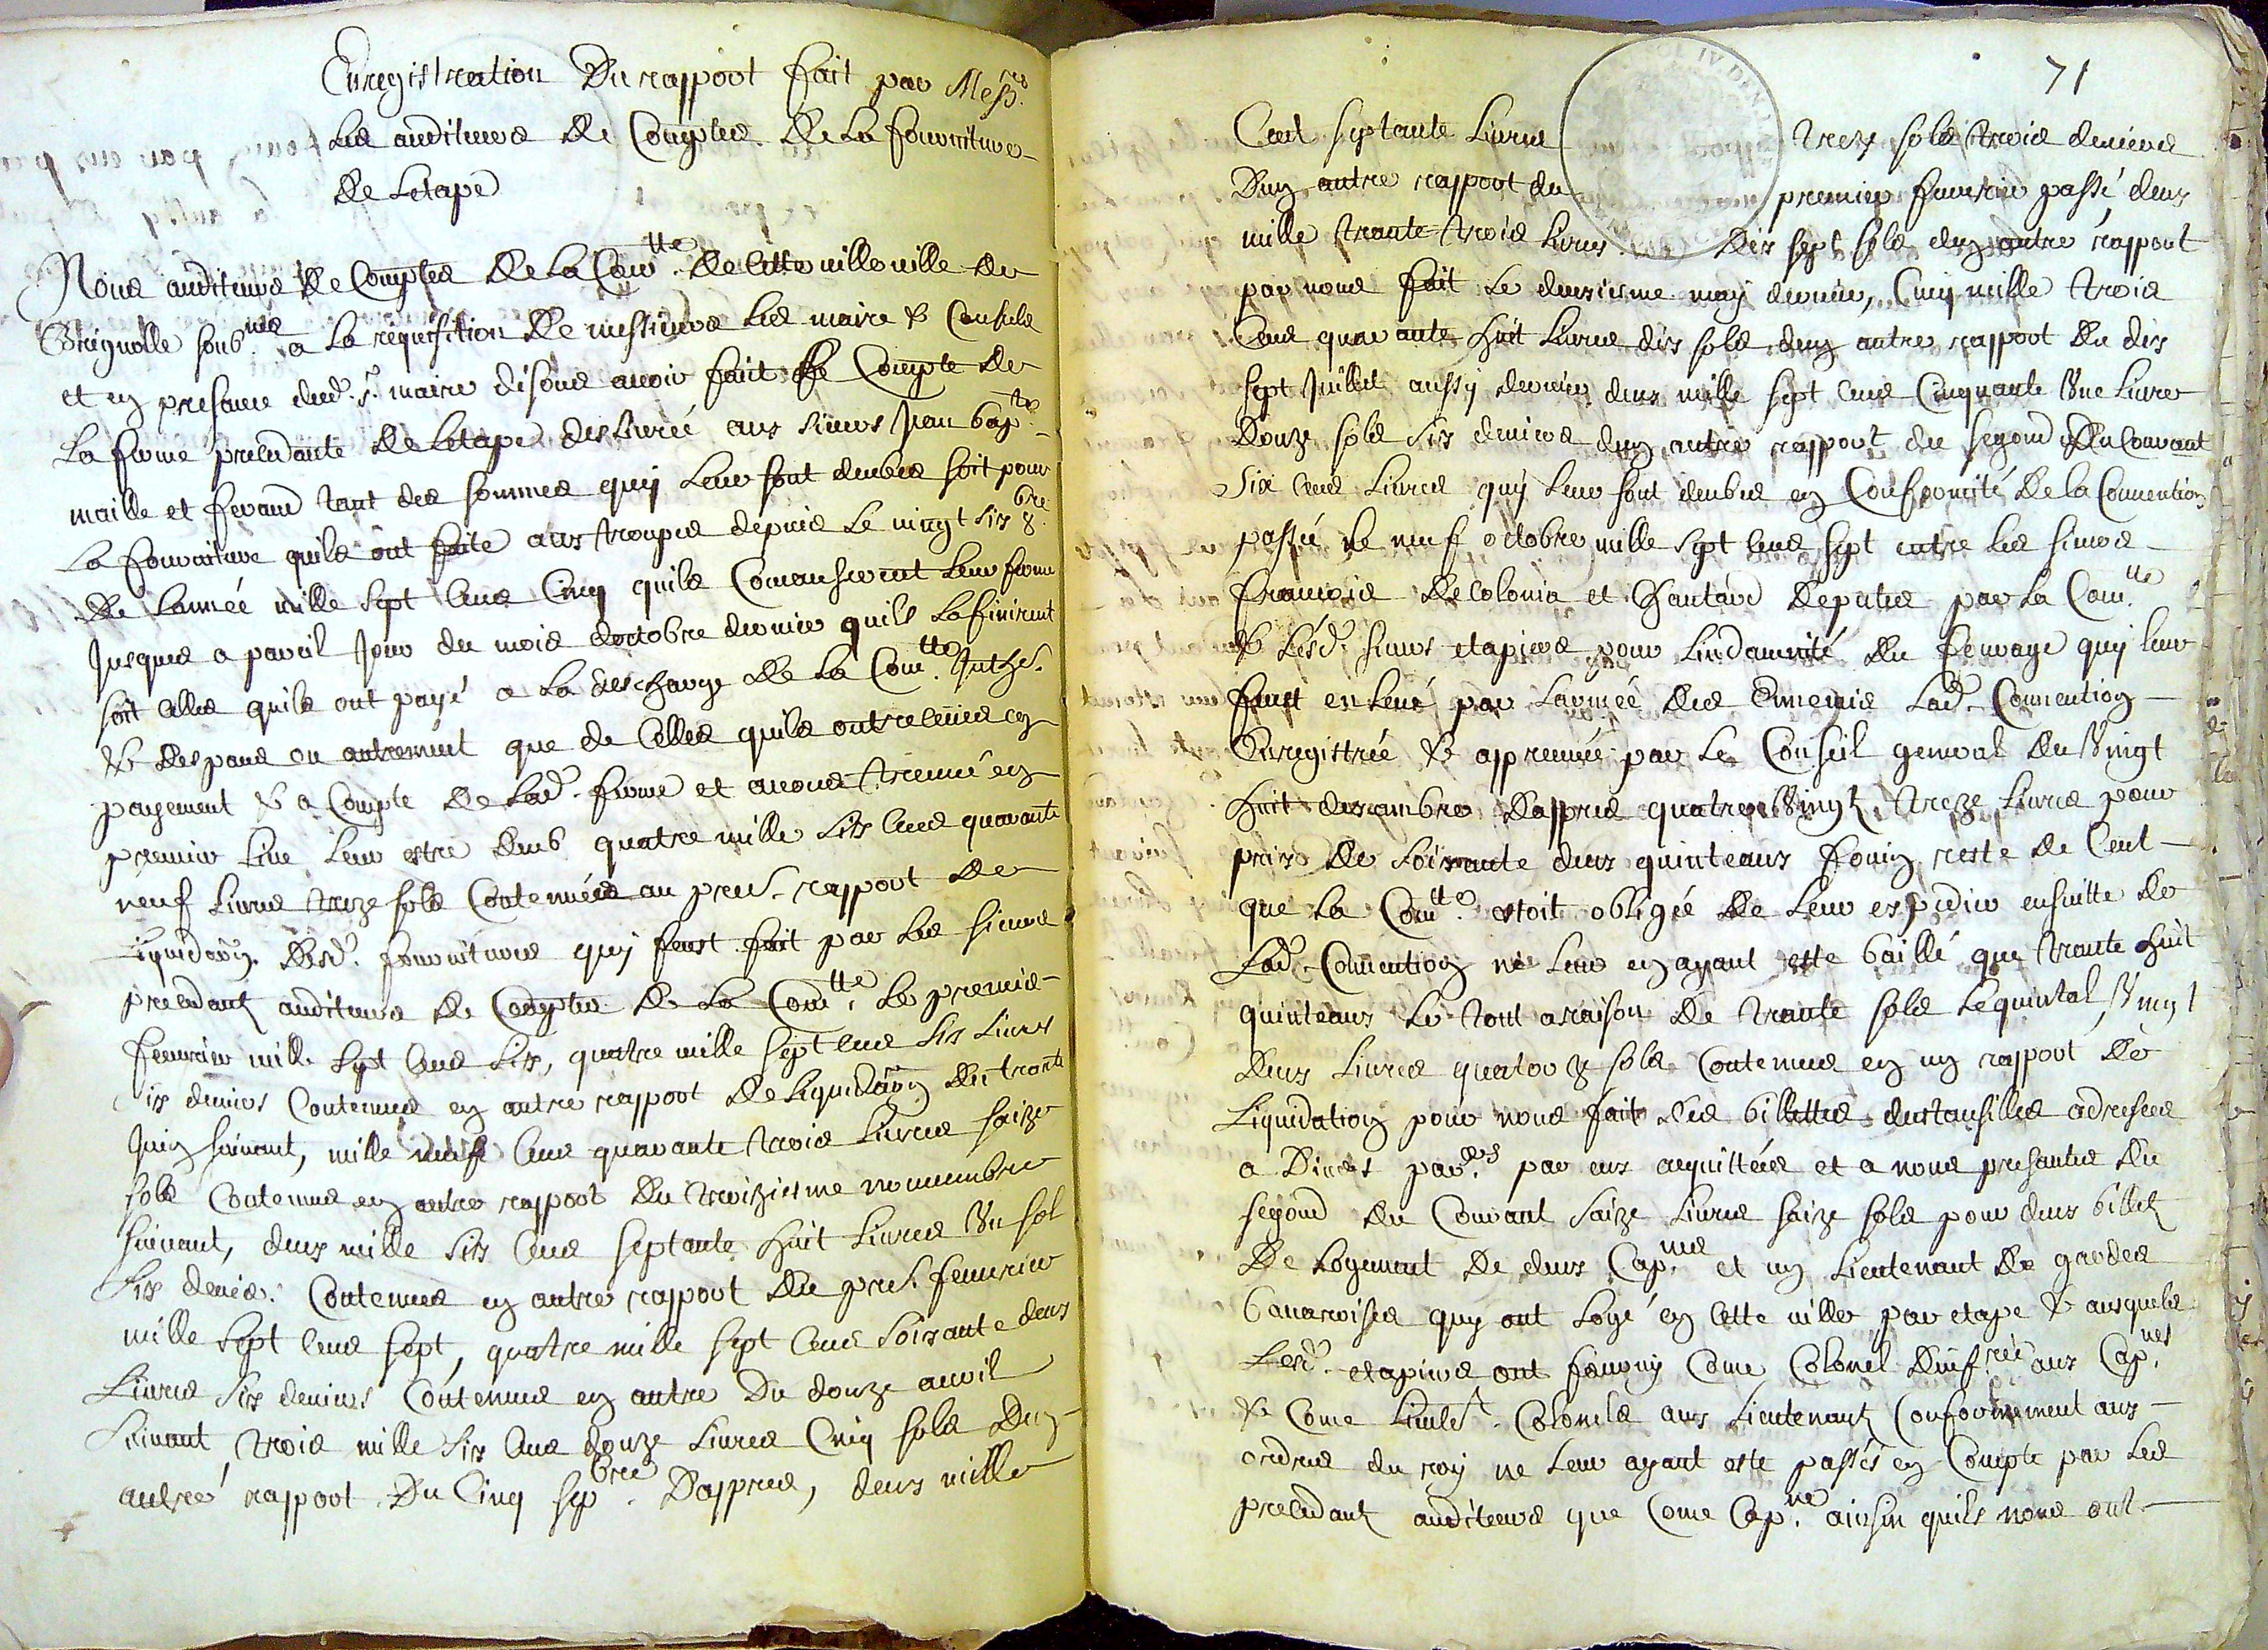 Enregistration Du rapport fait par Mess.rs
Les auditeurs de Comptes de la fourniture
de Letape
Nous auditeurs de Comptes de la Com.tte de cette ville ville de
Brignolle sous.nes a la requisition de messieurs les maire & Consuls
et en presance dud. s.r maire disons avoir fait le Compte de
la ferme precedante de Letape deslivrée aux sieurs Jean bap.te
maille et feraud tant des sommes quy leur sont deubes soit pour
la fourniture quils ont faite aux troupes depuis le vingt six 8.bre
de lannée mille sept cens Cinq quils Comanserent leur ferme
Jusques a pareil Jour du mois doctobre dernier quils la finirent
soit celles quils ont payé a la descharge de la Com.tte
& despans ou autrement que de celles quils ont receues en
payement & a Compte de lad. ferme et avons treuvé en
premier lieu leur estre deub quatre mille six cens quarante
neuf livres treze sols Contenues au pres. rapport de
liquidaôn desd. fournitures quy feust fait par les sieurs
precedantz auditeurs de Comptes de la Com.tte le premier
feuvrier mille sept cens six, quatre mille sept cens six livres
six deniers Contenues en autre rapport de liquidaôn du trante
Juin suivant, mille neuf cens quarante trois livres saize
sols Contenues en autre rapport du troizieme novembre
suivant, deux mille six cens septante huit livres Un sol
six deniers Contenues en autre rapport du pres. feuvrier
mille sept cens sept, quatre mille sept cens soixante deux
Livres six deniers Contenues en autre du douze avril
suivant trois mille six cens douze livres Cinq sols Dun
autre rapport Du Cinq sep.bre Dapprés, deux mille
71
Cent septante livres trez sols trois deniers
Dun autre rapport du premier feuvrier passé deux
mille trante trois livres dix sept sols dun autre rapport
par nous fait le deuxiesme may dernier, Cinq mille trois
Cens quarante huit livres dix sols dun autre rapport du dix
sept Juillet aussy dernier deux mille sept cens Cinquante Une livre
Douze sols six deniers dun autre rapport du segond du Courant
Six cens livres quy leur sont deubes en Conformité de la Convention
passée le neuf octobre mille sept cens sept entre les sieurs
francois de Colonia et Chautard deputés par la Com.tte
& lesd. sieurs etapiers pour lindamnité du fourage quy leur
feust enlevé par larmée des Ennemis lad. Convention
Enregistrée & appreuvée par le Conseil general du Vingt
huit desambre dapprés quatre Vingt treze livres pour
prix de soixante deux quinteaux fouin reste de Cent
que la Com.tte estoit obligée de leur expedier ensuitte de
lad. Convention ne leur en ayant este baillé que trante huit
quinteaux le tout a raison de trante sols le quintal, Vingt
deux livres quatorze sols Contenues en un rapport de
Liquidation pour nous fait des billettes dustansilles adressees
a Divers par.ers par eux acquittées et a nous presantes du
segond du Courant saize livres saize sols pour deux billetz
de logement de deux Cap.nes et un Lieutenant de gardes
bavaroises quy ont logé en cette ville par etape & ausquels
lesd. etapiers ont fourny Come Colonel aux Cap.nes
& Come Lieut.t Colonels aux Lieutenantz Conformement aux
ordres du roy ne leur ayant este passés en Compte par les
precedantz auditeurs que Come Cap.ne ainsin quils nous ont